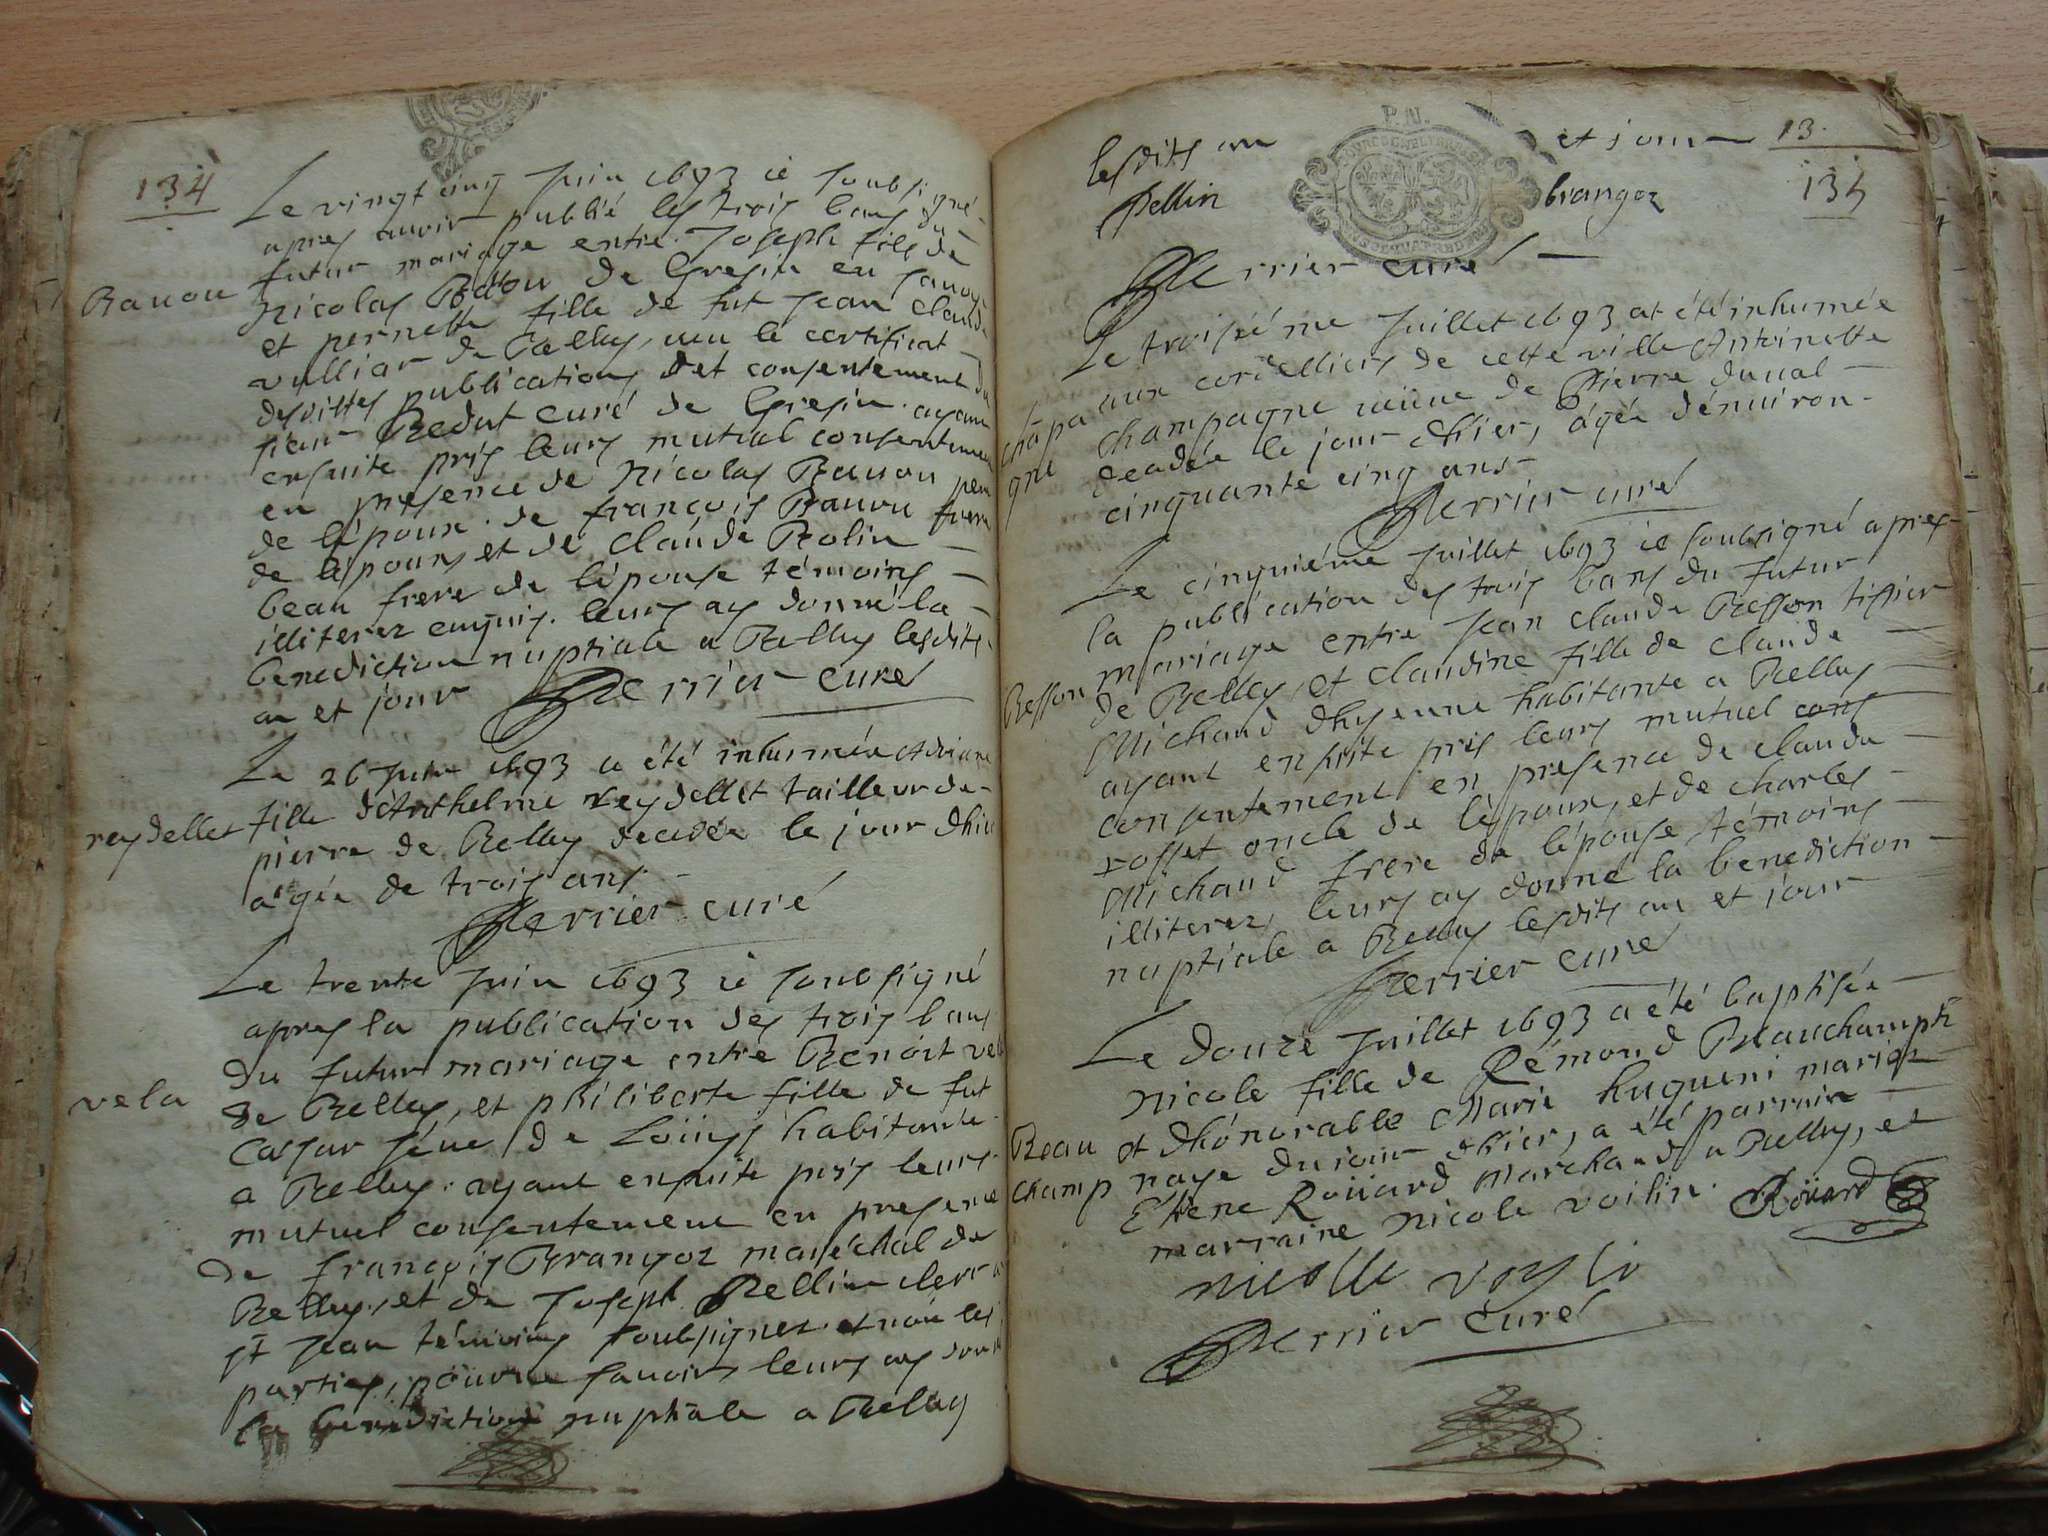 134
Le vingt cinq Juin 1693 ie soubsigné
apres avoir publié les trois bans du
futur mariage entre Joseph fils de
Bauou
Nicolas de Gresin en sauoye
et pernette fille de fut Jean Claude
vulliar de Belley, veu le certificat
desdittes publications et consentement du
sieur curé de Gresin ayant
ensuite pris leurs mutual consentement
en presence de Nicolas Bauou pere
de lépoux de françois Bauou frere
de lépoux et de Claude Bolin
beau frere de lépouse témoins
illiterez enquis. leurs ay donné la
benediction nuptiale a Belley lesdits
an et jour Perrier curé
Le 26 Juin 1693 a été inhumée
reydellet
fille dAnthelme reydellet tailleur de
pierre de Belley decedée le jour dhier
agée de trois ans
Perrier curé
Le trente Juin 1693 ie soubsigné
apres la publication des trois bans
du futur mariage entre Benoit vela
vela
de Belley, et philiberte fille de fut
habitante
a Belley. ayant ensuite pris leurs
mutuel consentement en presence
de françois Brangoz maréchal de
Belley, et de Joseph Bellin clerc a
st Jean témoins soubsignez et non les
parties, pour ne sauoir leurs ay donné
la benediction nuptiale a Belley
13.
135
lesdits an et jour
Pellin brangoz
Perrier curé
Le troisiéme Juillet 1693 at été inhumée
chapa
gne
aux cordelliers de cette ville Antoinette
champagne veüve de Pierre duual
decedée le jour dhier, agée dénuiron
cinquante cinq ans
Perrier curé
Le cinquiéme Juillet 1693 ie soubsigné apres
la publication des trois bans du futur
mariage entre Jean Claude Besson tissier
Besson
de Belley, et Claudine fille de Claude
Michaud dhyenne habitante a Belley
ayant ensuite pris leurs mutuel cons
consentement en presence de Claude
rosset oncle de lépoux, et de Charles
Michaud frere de lépouse témoins
illiterez, leurs ay donné la benediction
nuptiale a Belley lesdits an et jour
Perrier curé
Le douze Juillet 1693 a été baptisée
Nicole fille de Rémond Beauchamp
Beau
champ
et dhónorable Marie hugueni mariez
naye du jour dhier, a été parrain
Etiene Roüard marchand a Belley, et
marraine Nicole voilin. Roüard
nicolle
Perrier curé